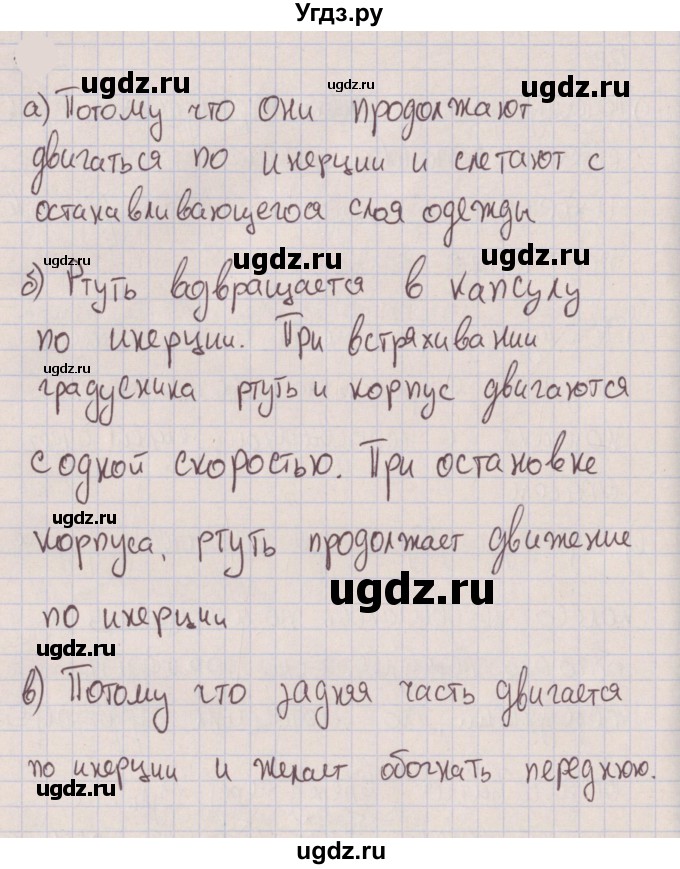 Угдз.ру
ugdz.ru
ugdz.ru
ugdz.ru
а) Потому что они продолжают
двигаться по инерции и слетают с
останавливающегося слоя одежды
ugdz.ru
ugdz.ru
ugdz.ru
б) Ртуть возвращается в капсулу
по инерции. При встряхивании
ugdz.ru
градусника ртуть и корпус двигаются
с одной скоростью. При остановке
ugdz.ru
корпуса, ртуть продолжает движение
ugdz.ru
по инерции
ugdz.ru
в) Потому что задняя часть двигается
по инерции и желает обогнать переднюю.
ugdz.ru
ugdz.ru